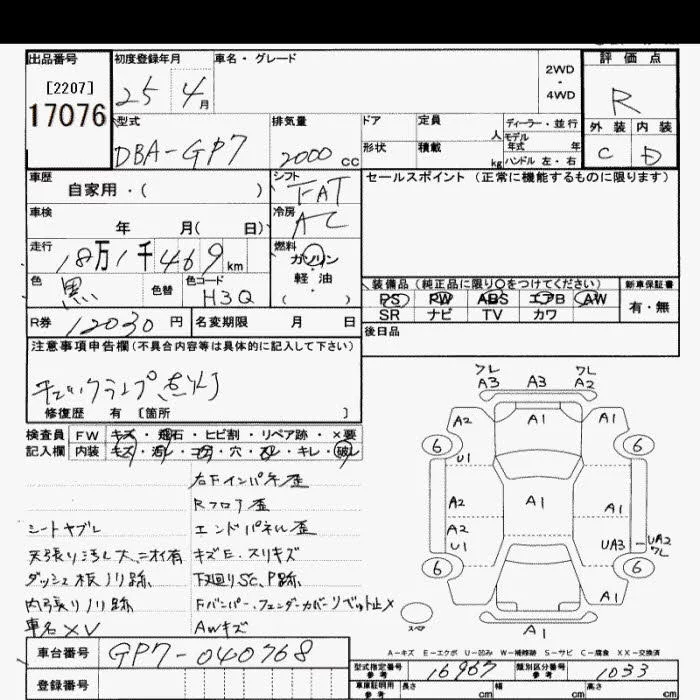 出品番号 初度登録年月 車名・グレード 2WD・4WD 評価点
[2207]
17076 25 4月 R
外装 内装
C D
型式 排気量 ドア 定員 人 ディーラー・並行
モデル年式 年
DBA-GP7 2000cc 形状 積載 kg ハンドル 左・右
車歴 シフト セールスポイント (正常に機能するものに限ります)
自家用・( ) FAT
車検 冷房
年 月( 日) AC
走行 燃料
18万1千469km ガソリン
軽・油
( )
色 色替 色コード
黒 H3Q
装備品 (純正品に限り○をつけてください) 新車保証書
PS PW ABS エアB AW 有・無
SR ナビ TV カワ
R券 12030円 名変期限 月 日
後日品
注意事項申告欄(不具合内容等は具体的に記入して下さい)
チェックランプ点灯
修復歴 有 [箇所 ]
検査員 FW キズ・飛石・ヒビ割・リペア跡・×要
記入欄 内装 キズ・汚レ・コゲ・穴・スレ・キレ・破レ
右Fインパネ歪
Rフロア歪
シートヤブレ エンドパネル歪
天張り汚レ大、ニオイ有 キズE・スリキズ
ダッシュ板ノリ跡 下廻りSC、P跡
内張りノリ跡 Fバンパー・フェンダーカバーリベット止×
車名XV AWキズ
ワレ ワレ
A3 A3 A2
A2 A1 A1
6 6
U1
A2 A1 A1
A2
U1 UA3 UA2
ワレ
6 6
スペア
A1
A-キズ E-エクボ U-凹み W-補修跡 S-サビ C-腐食 XX-交換済
車台番号 GP7-040768
型式指定番号 参考 16967 類別区分番号 参考 1033
登録番号
車庫証明用 参考 長さ cm 幅 cm 高さ cm